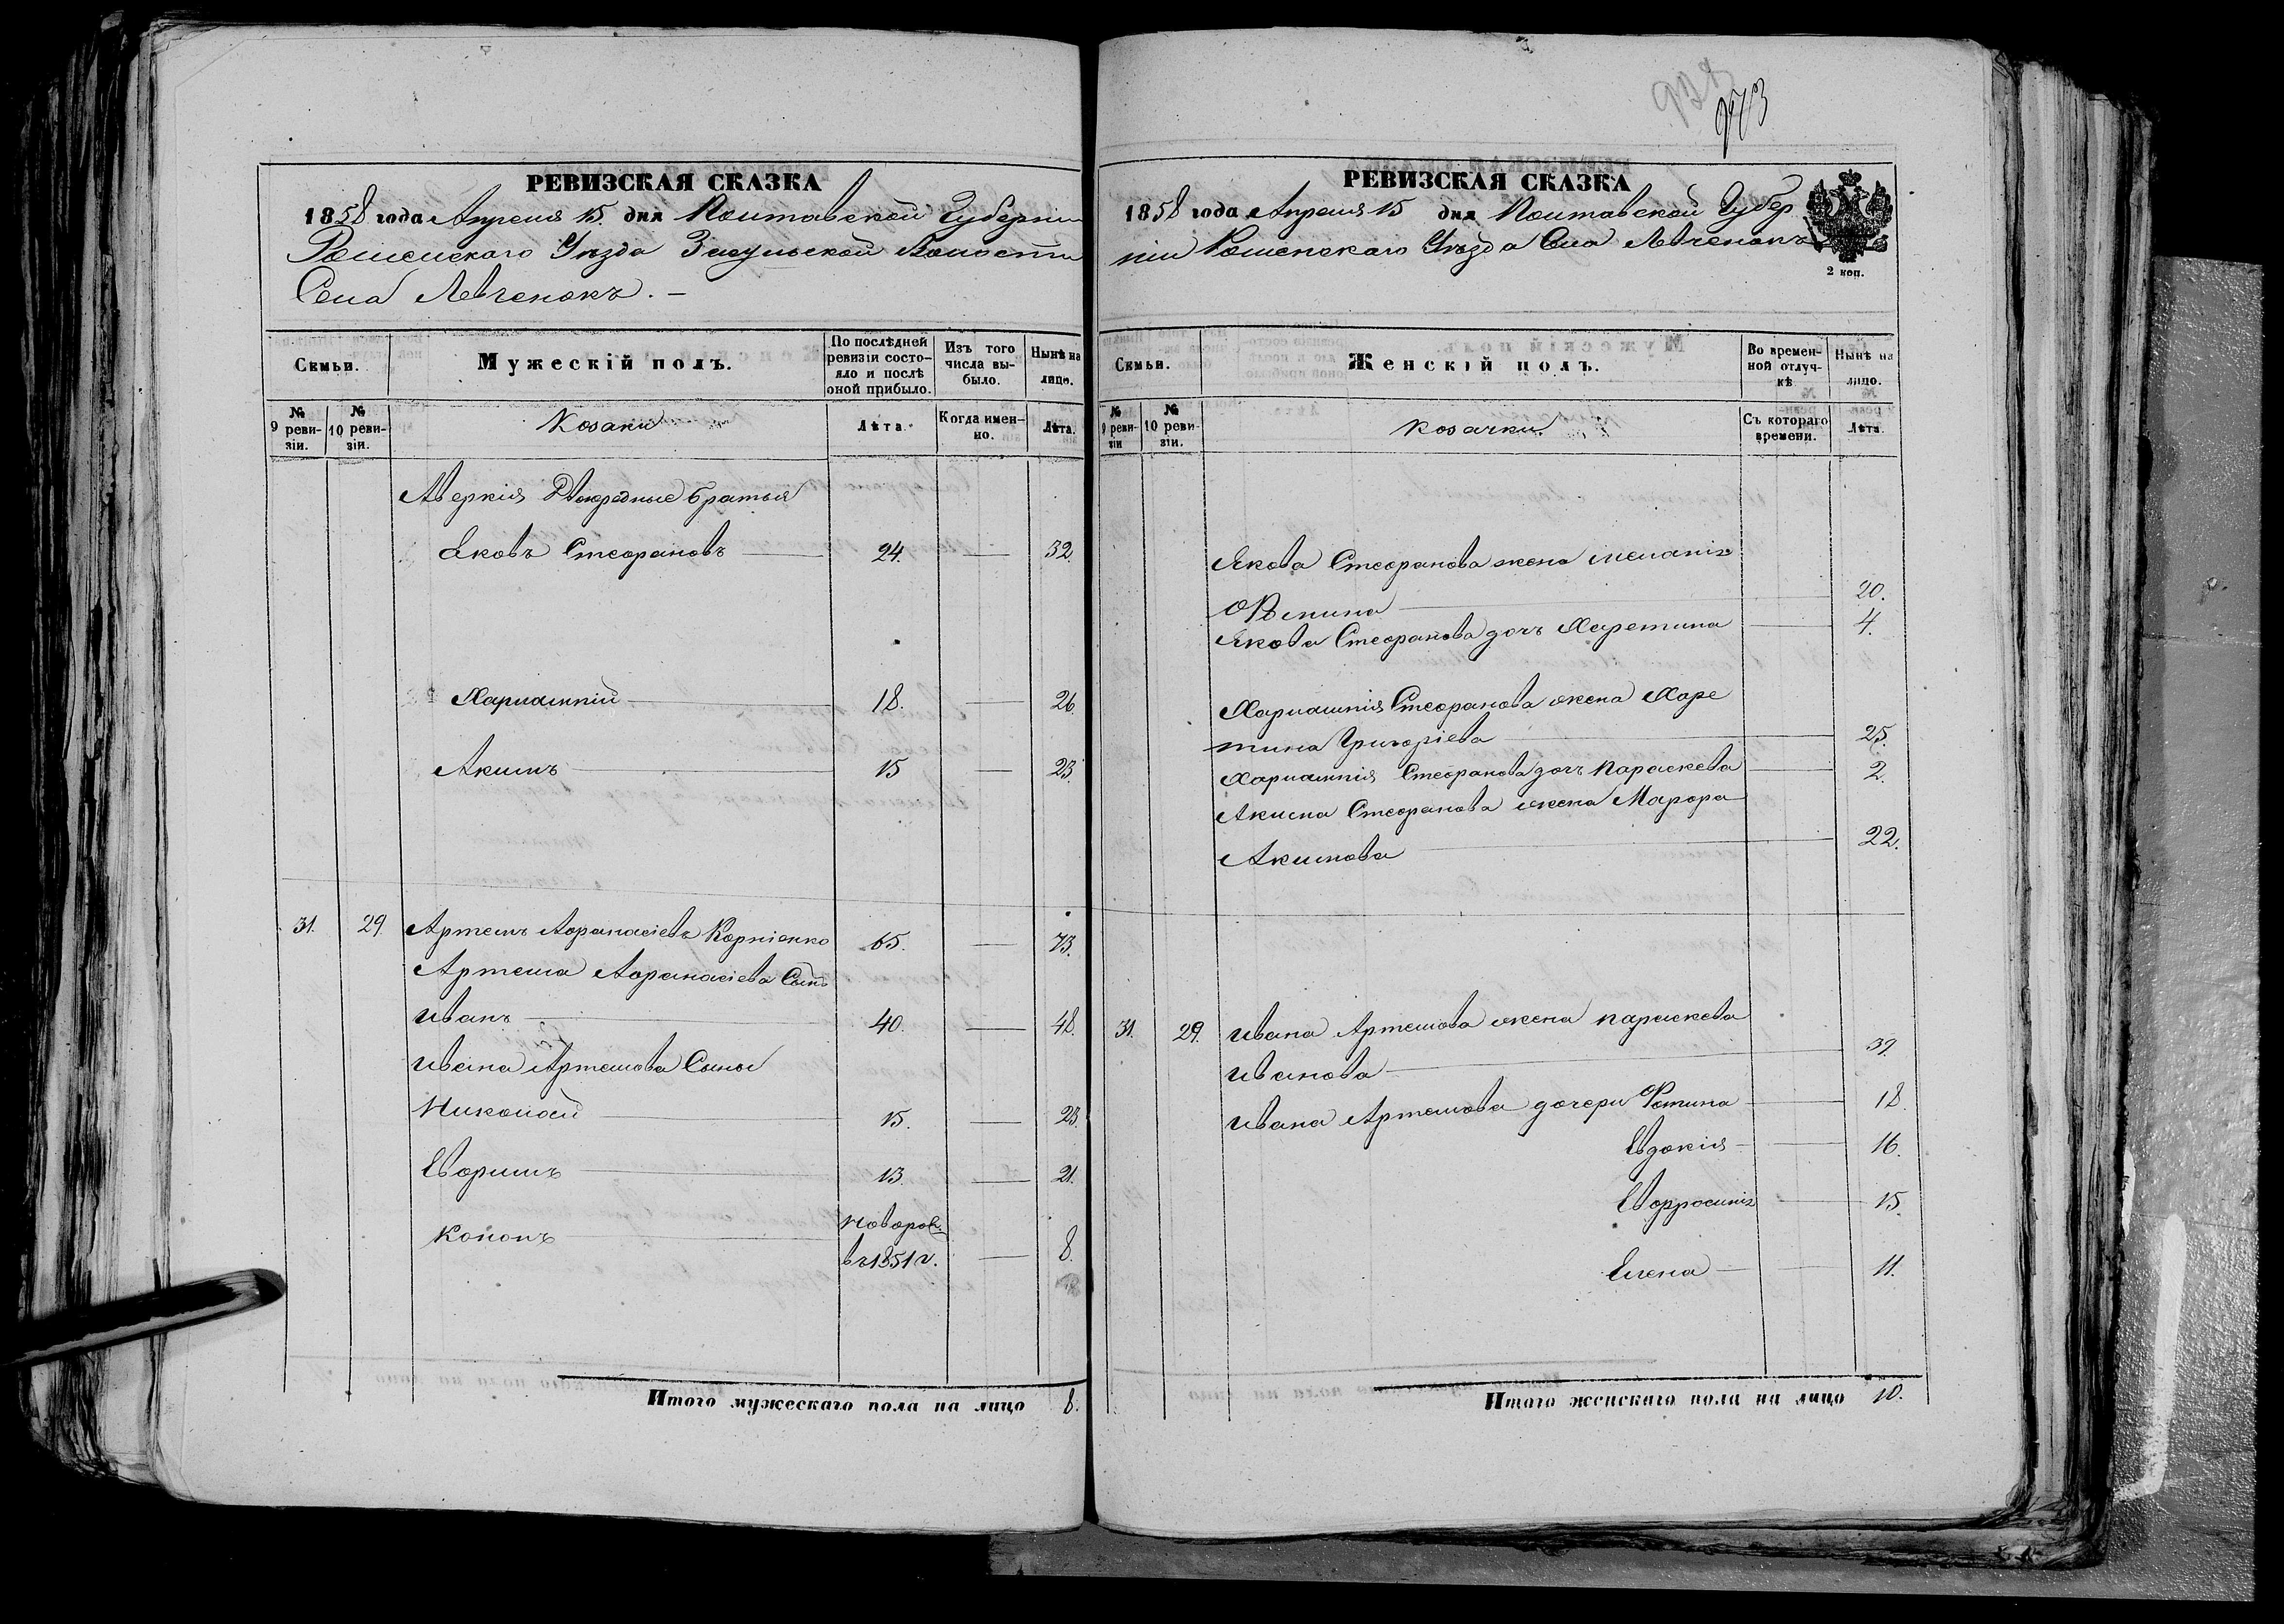 РЕВИЗСКАЯ СКАЗКА
1858 года Апреля 15 дня Полтавской Губерніи
Роменскаго Уезда Засульской Волости
Села Левченокъ. —
Семьи.
Мужескій полъ.
По послѣдней ревизіи состояло и послѣ оной прибыло.
Изъ того числа выбыло.
Нынѣ на лицо.
№ 9 ревизіи.
№ 10 ревизіи.
Козаки
Лѣта.
Когда именно.
Лѣта.
Аверкія Двоюродные братья
Яковъ Стефановъ — 24. — 32.
Харлампій — 18. — 26.
Акимъ — 15 — 23.
31. 29. Артемъ Афанасіевъ Корніенко 65. — 73.
Артема Афанасіева Сынъ
Иванъ — 40. — 48.
Ивана Артемова Сыны
Николай — 15. — 23.
Ефимъ — 13. — 21.
Кононъ — новорож.
въ 1851 г. — 8.
Итого мужескаго пола на лицо 8.
973
РЕВИЗСКАЯ СКАЗКА
1858 года Апреля 15 дня Полтавской Губер
ніи Роменскаго Уезда Села Левченокъ
2 коп.
Семьи.
Женскій полъ.
Во временной отлучкѣ
Нынѣ на лицо.
№ 9 ревизіи
№ 10 ревизіи.
Козачки.
Съ котораго времени.
Лѣта.
Якова Стефанова жена Меланія
— 20.
Якова Стефанова дочь Харетина — 4.
Харлампія Стефанова жена Харе
тина Григоріева — 25.
Харлампія Стефанова дочь Параскева — 2.
Акима Стефанова жена Марфа
Акимова — 22.
31. 29. Ивана Артемова жена Параскева
Иванова — 39.
Ивана Артемова дочери Фотина — 18.
Евдокія — 16.
Ефросинія — 15.
Елена — 11.
Итого женскаго пола на лицо 10.